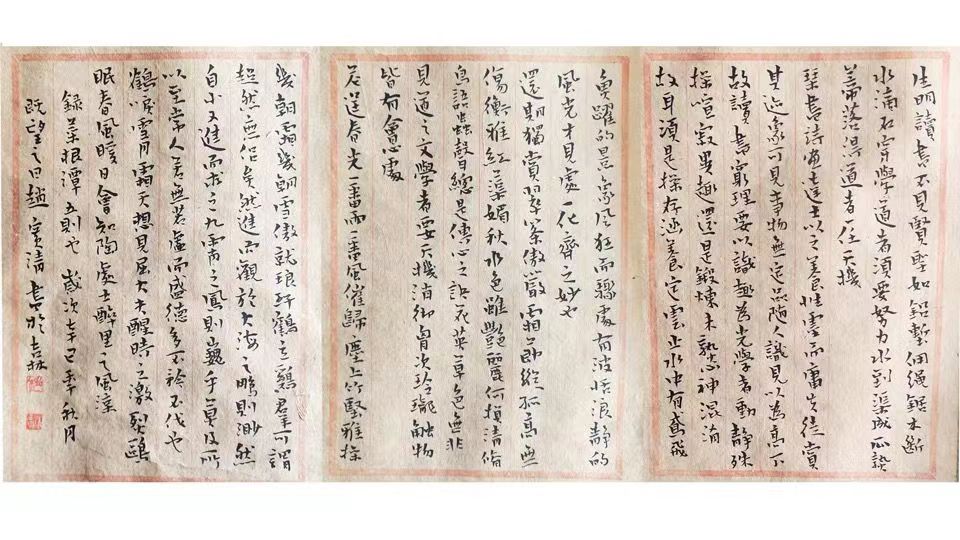 生明讀書不見賢聖如鉛塹佣繩鋸木斷
水滴石穿學道者須要努力水到渠成瓜熟
蒂落得道者一任天機
琴書詩畫達士以之養性靈而庸夫徒賞
其迹象可見事物無定品隨人識見以為高下
故讀書窮理要以識趣為先學者動靜殊
操喧寂異趣還是鍛煉未熟心神混淆
故耳須是操存涵養定雲止水中有鳶飛
魚躍的景象風狂雨驟處有波恬浪靜的
風光才見處一化齊之妙也
還期獨賞翠筱傲嚴霜節縱孤高無
傷衡雅紅蕖媚秋水色雖艷麗何損清修
鳥語蟲聲總是傳心之訣花英草色無非
見道之文學者要天機清徹胷次玲瓏觸物
皆有會心處
若逞春光一番雨一番風催歸塵土竹堅雅操
幾朝霜幾朝雪傲就琅玕鶴立雞群可謂
超然無侶矣然進而觀於大海之鵬則渺然
自小又進而求之九霄之鳳則巍乎莫及所
以至常人若無若虛而盛德多不矜不伐也
鶴唳雪月霜天想見屈大夫醒時之激烈鷗
眠春風暖日會知陶處士醉里之風流
錄菜根譚五則也 歲次辛巳年秋月
既望之日趙寅清書於吉林